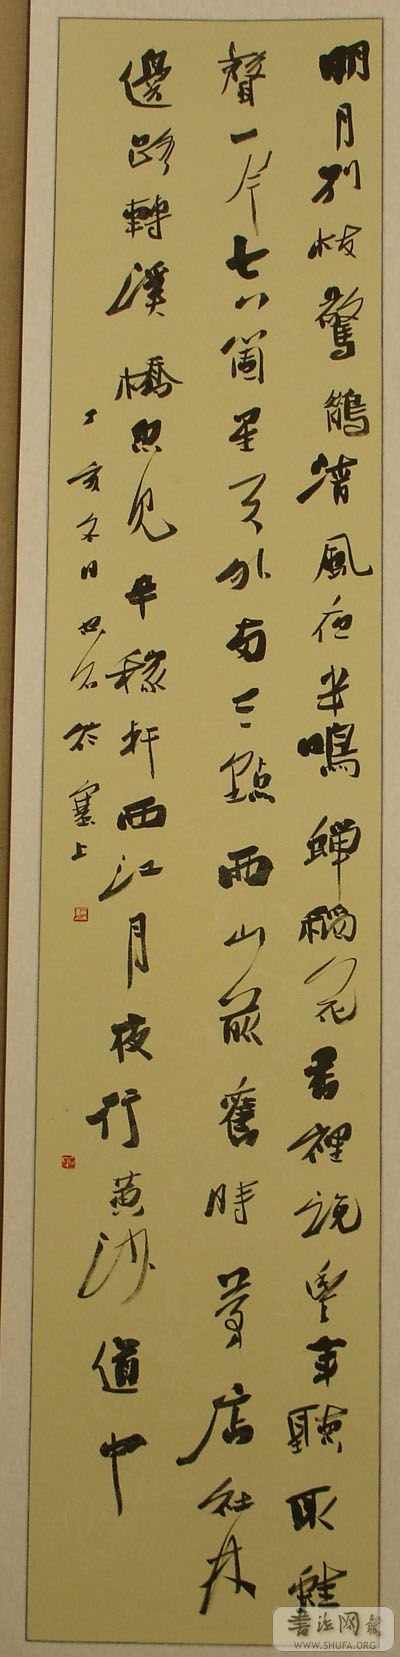 明月別枝驚鵲清風夜半鳴蟬稻花香裡說豐年聽取蛙
聲一片七八箇星天外兩三點雨山前舊時茅店社林
邊路轉溪橋忽見辛稼軒西江月夜行黃沙道中
丁亥冬日世名於塞上
書法网
WWW.SHUFA.ORG